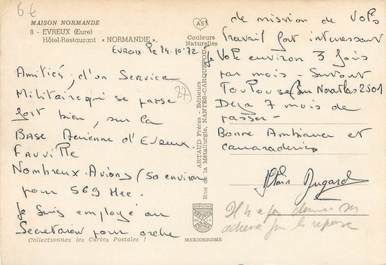 6€
MAISON NORMANDE
8 - EVREUX (Eure)
Hôtel-Restaurant « NORMANDIE »
Couleurs
Naturelles
EVREUX le 14.10.72
Amitiés, d'un Service
Militaire qui se passe
fort bien, sur la
BASE Aérienne d'Evreux
FAUVILLE
Nombreux Avions (50 environ
pour 569 Hec.
Je suis employé au
Secretariat pour ordre
Collectionnez les Cartes Postales !
(27)
ARTAUD Frères - Editeurs
Rue de la Métallurgie, NANTES-CARQUEFOU
MARQUISIENNE
de mission de VOLS
Travail fort interessant
Je VOLE environ 3 fois
par mois. Surtout
Toulouse sur Noratlas 2501
DEJA 7 mois de
passer.
Bonne Ambiance et
camaraderie
Alain Dugard
Il y a
la réponse